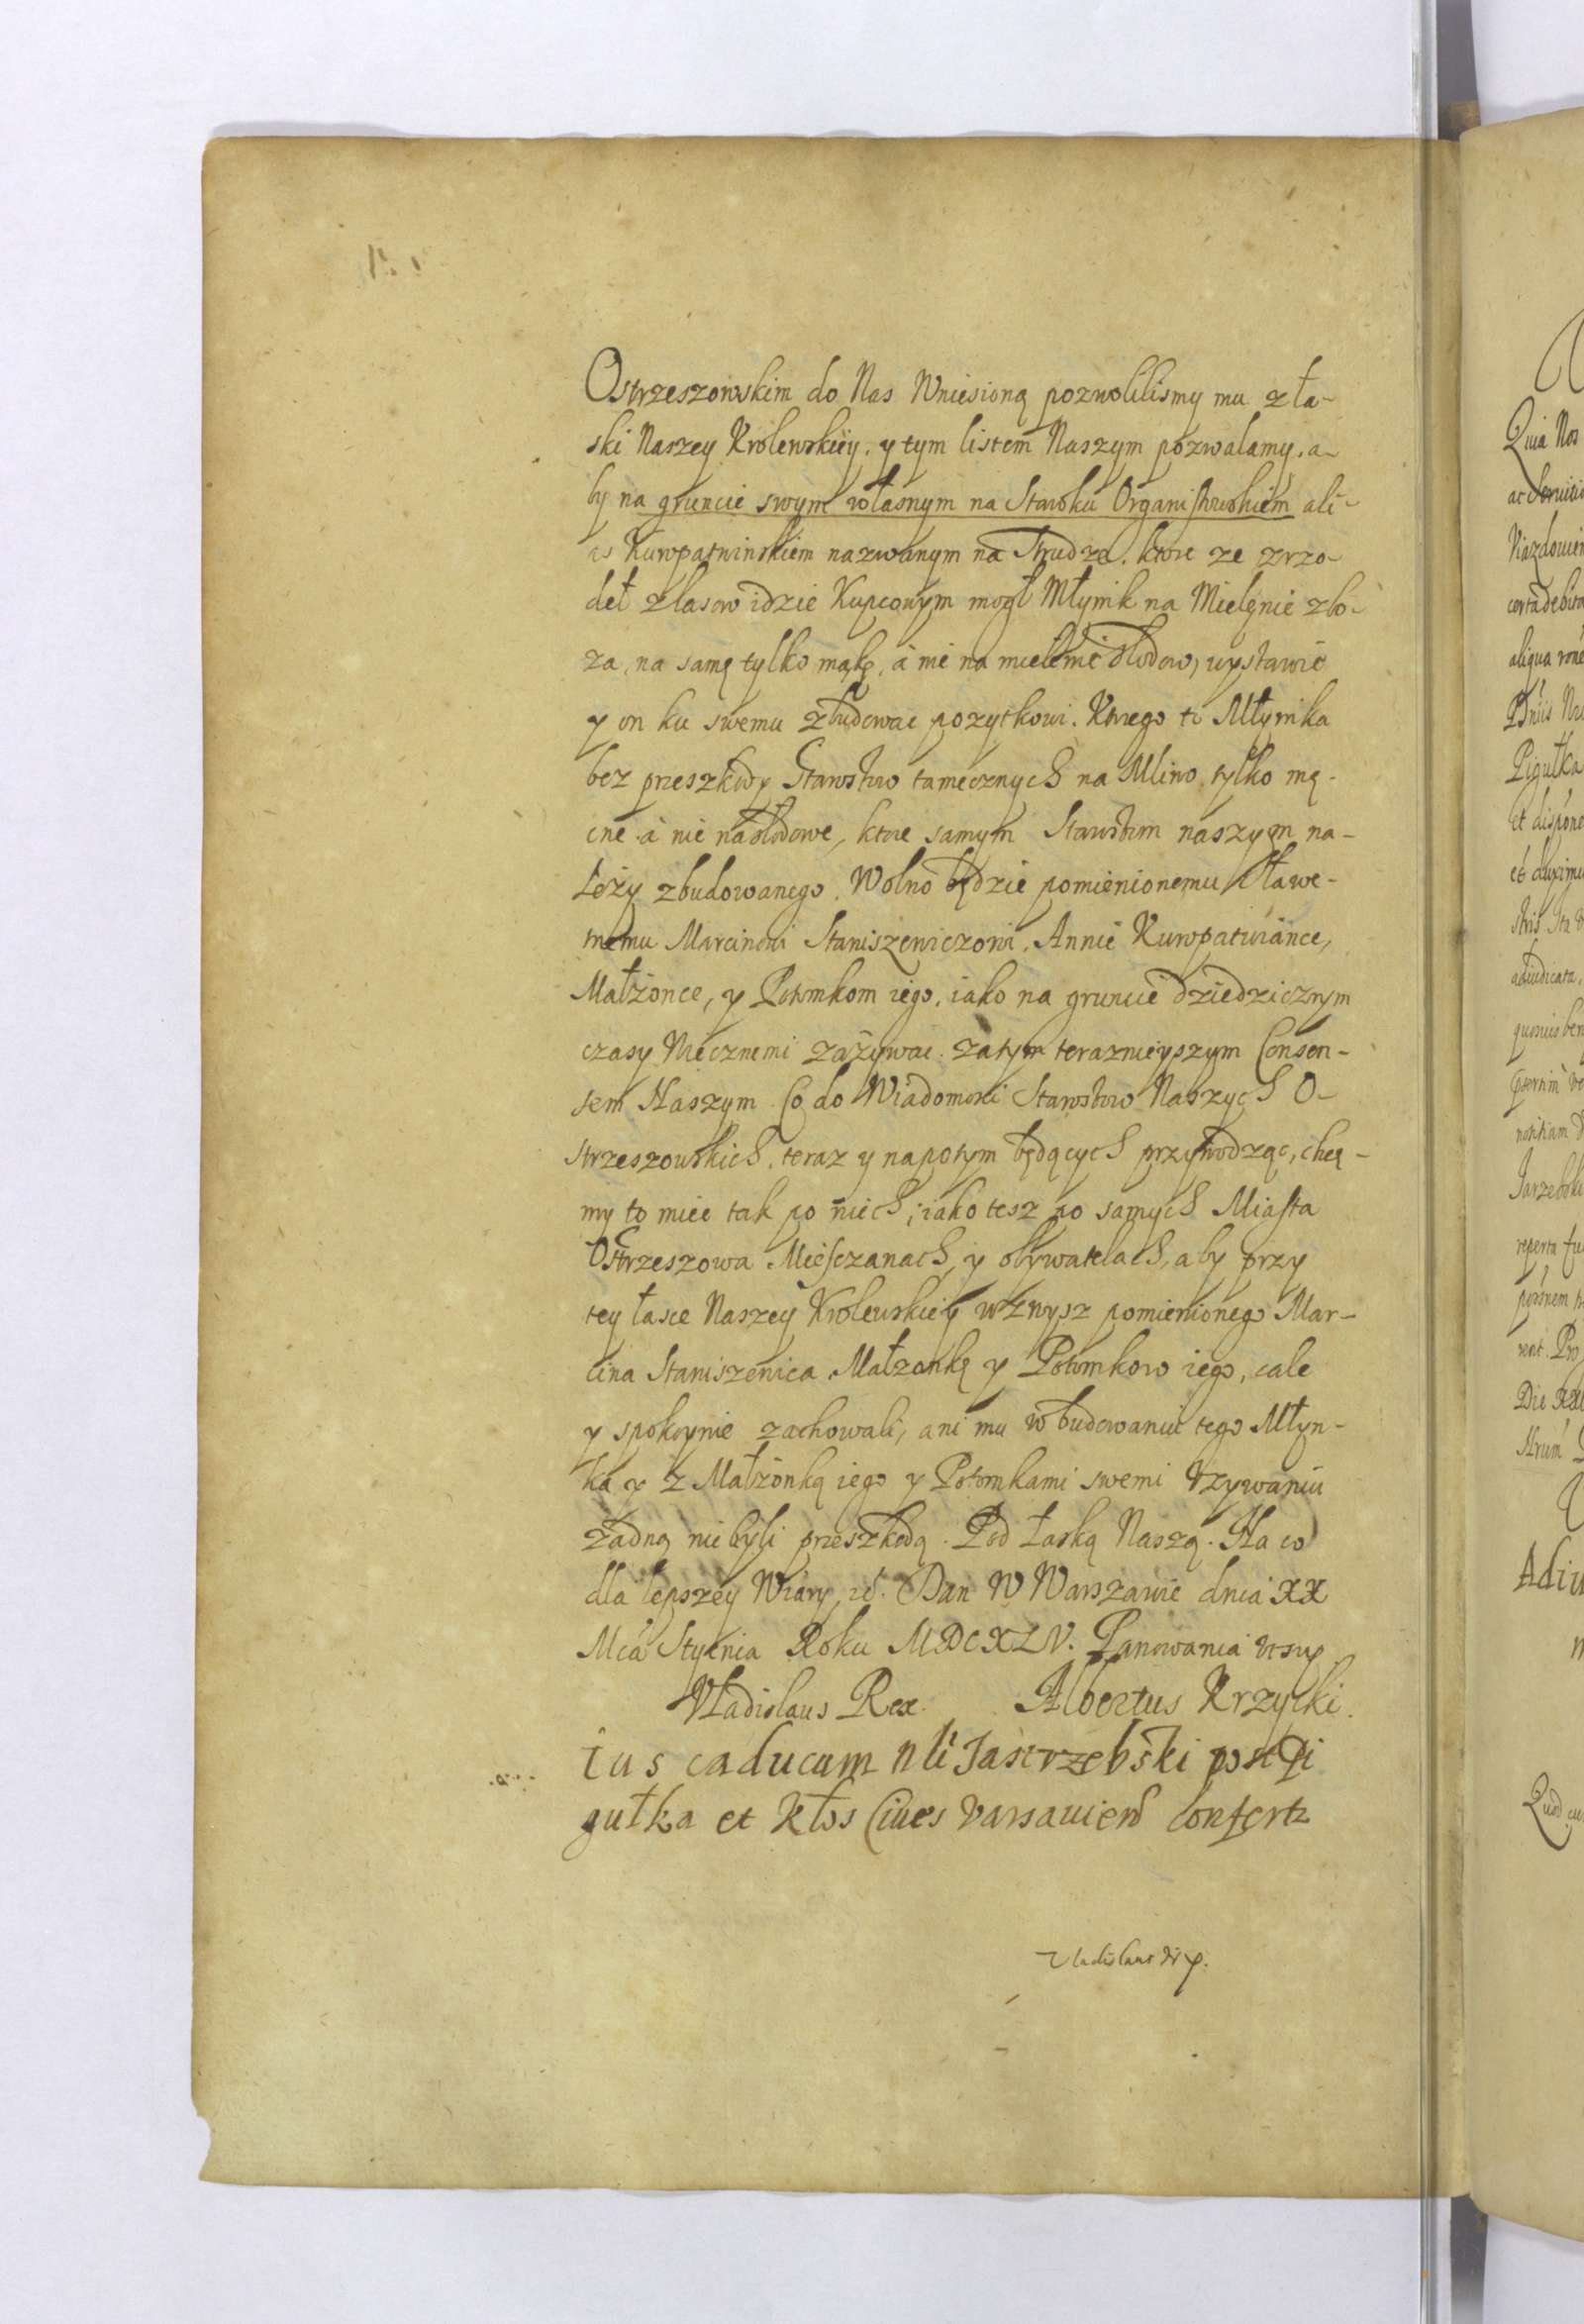 Ostrzeszowskim do Nas Wniesioną pozwolilismy mu z ła-
ski Naszey Krolewskiey. y tym listem Naszym pozwalamy. a-
by na gruncie swym własnym na Stawku Organistwskiem ali-
as Kurwpatwinskiem nazwanym na Strudze. ktore ze zrzo-
deł z lasow idzie Kupconym mogł Młynik na Mielęnie zbo-
za, na samę tylko mąkę, a nie na mielenie słodow, wystawić
y on ku swemu zbudowac pozytkowi. Ktorego to Młynika
bez przeszkody Starostow tamecznych na Mliwo tylko mą-
cne a nie na słodowe, ktore samym Starostom naszym na-
leży zbudowanego. Wolno będzie pomienionemu Sławe-
tnemu Marcinowi Staniszewiczowi, Annie Kurwpatwiance,
Małżonce, y Potomkom iego, iako na gruncie dziedzicznym
czasy Wiecznemi zażywac. za tym teraznieyszym Consen-
sem Naszym. Co do Wiadomosci Starostow Naszych O-
strzeszowskich. teraz y napotym będących przywodząc, chcę-
my to miec tak po nich, iako tesz po samych Miasta
Ostrzeszowa Miesczanach, y obywatelach, aby przy
tey łasce Naszey Krolewskiey wzwysz pomienionego Mar-
cina Staniszewica Małzonkę y Potomkow iego, cale
y spokoynie zachowali, ani mu w budowaniu tego Młyn-
ka y z Małżonką iego y Potomkami swemi Vzywaniu
żadną nie byli przeszkodą. Pod łaską Naszą. Na co
dla lepszey Wiary, etc. Dan W Warszawie dnia XX
Mca Stycnia Roku MDCXLV. Panowania Vt sup
Vladislaus Rex. Albertus Krzycki.
ius caducum Nli Jastrzebski post Pi
gułka et Kłos Ciues Varsauien Confertr
Vladislaus